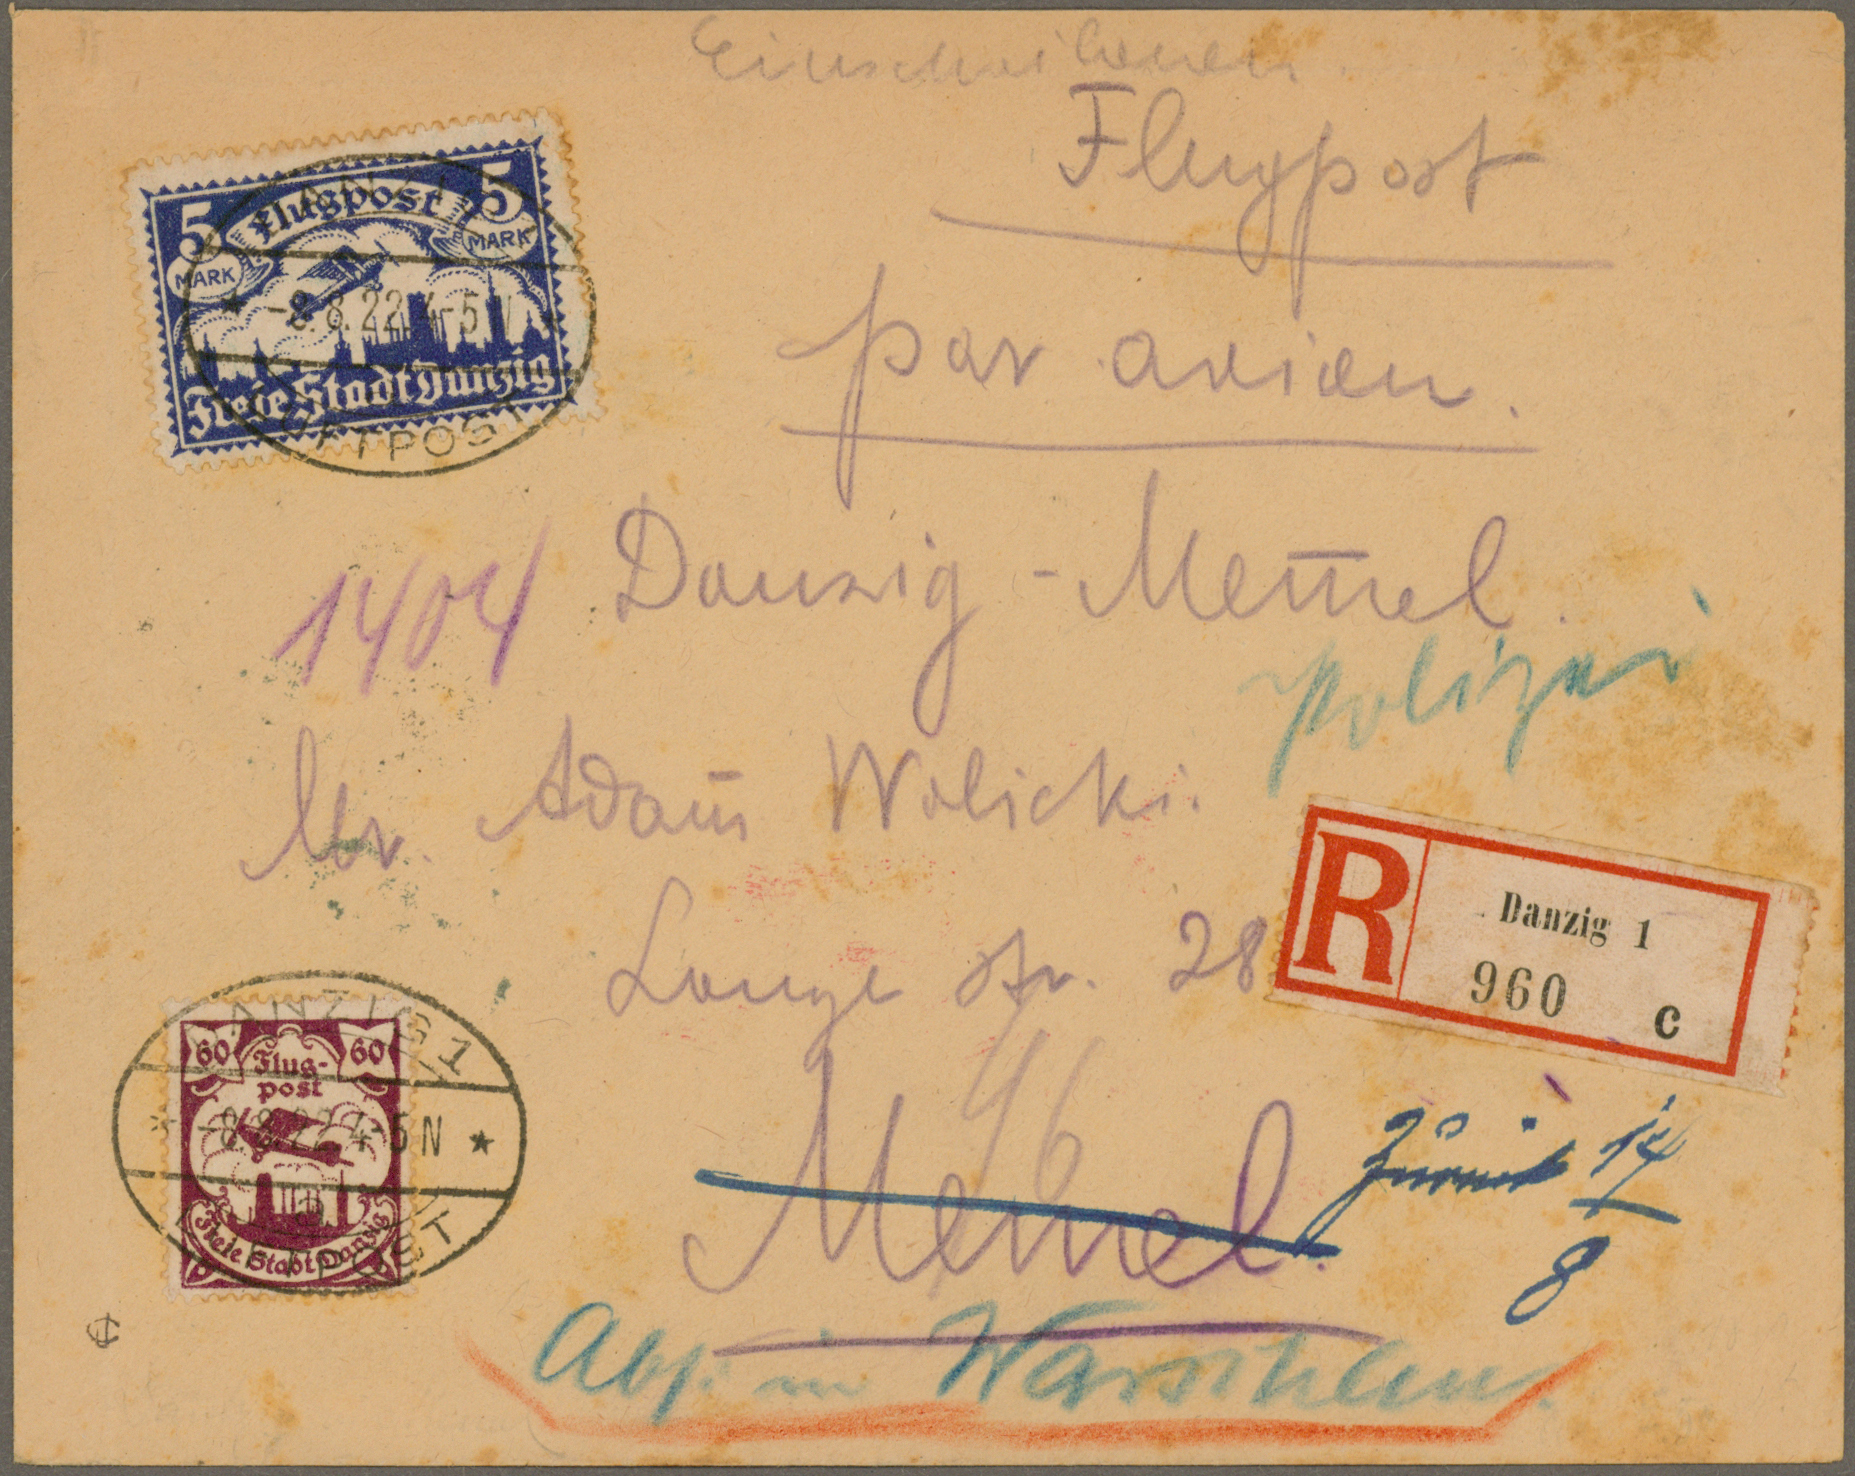 Einschreiben.
Flugpost
par avion.
Danzig - Memel.
1404
Polizei
Mr. Adam Wolicki.
Lange Str. 28
46
Memel.
zurück 14/8
Abs. in
5 Flugpost 5
MARK MARK
Freie Stadt Danzig
DANZIG
-8.8.22.4-5 N
LUFTPOST
R
Danzig 1
960 c
60 Flug- 60
post
Freie Stadt Danzig
DANZIG 1
* -8.8.22 4-5 N *
LUFTPOST